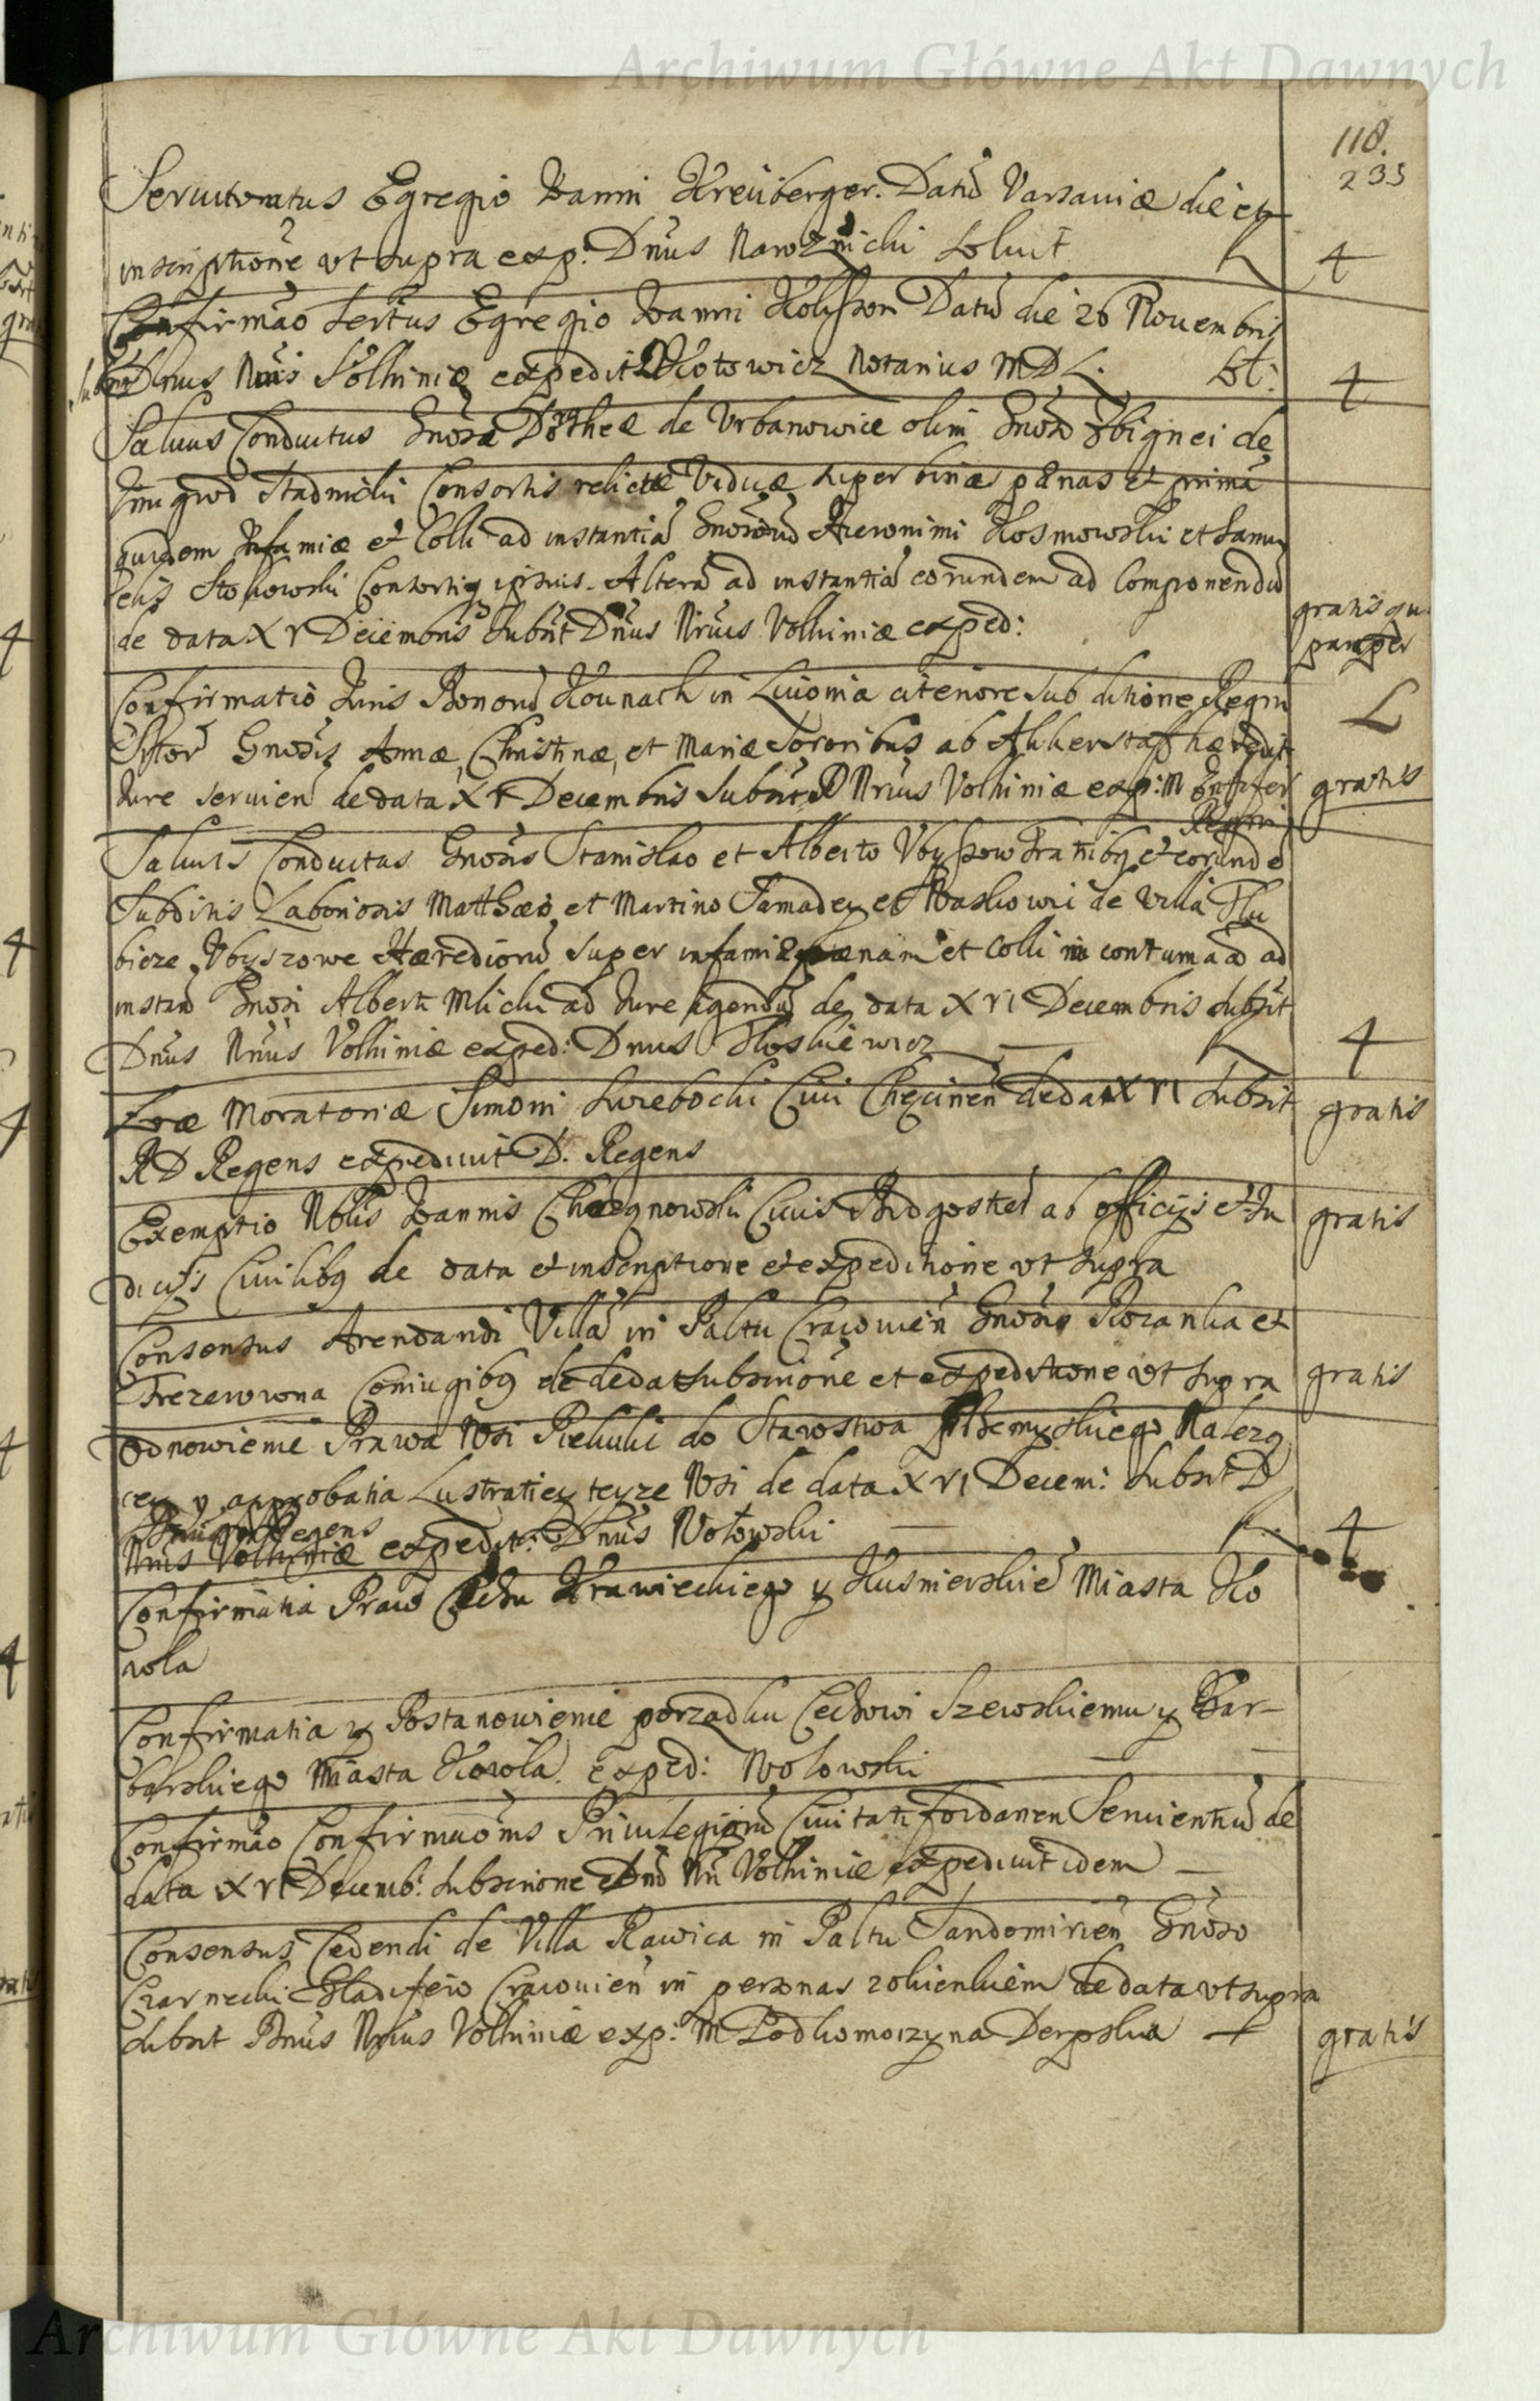 Archiwum Główne Akt Dawnych
118.
235
Seruitoratus Egregio Joanni Kreuberger. Datũ Varsauiæ die et
inscriptione vt supra exp: Dnus Nawoznicki Soluit 4
Confirmao Seruitus Egregio Joanni Datũ die 26 Nouembris
Dnus Nrius Volhiniæ expedit Kotowicz Notarius MDL. 4
Saluus Conductus Gnosæ Dorotheæ de Vrbanowice olim Gnosi Zbignei de
Zmigrod Stadnicki Consortis relictæ Viduæ super binas pænas et prima
quidem Infamiæ et Colli ad instantiã Gnosorũ Hieronimi Kosmowski et Samu
elis Stokowski Consortiq ipsius. Alterã ad instantiã eorundem ad Componendũ
de data XV Decembris Subsit Dnus Nrius Volhiniæ exped:
gratis qu.
pauper
Confirmatio Juris Bonorũ Kounach in Liuonia citeriore sub ditione Regni
Gnosis Annæ, Christinæ, et Mariæ Sororibus ab
Iure seruien de data XV Decembris Subsit D Nrius Volhiniæ exp: M gratis
Saluus Conductus Gnosis Stanislao et Alberto Vbyszow fratribq et eorundẽ
Subditis Laboriosis Matthæo et Martino et Waskowi de villa
Vbyszowe Hærediorũ super infamiæ pænam et colli in contumaciã ad
instañ Gnosi Alberti Mlicki ad Iure agendũ de data XVI Decembris subsit
Dnus Nrius Volhiniæ exped: Dnus — 4
Lræ Moratoriæ Simoni Ciui Chęcinen de data XVI Subsit gratis
RD Regens expediuit D. Regens
Exemptio Nblis Joannis Ciuis Bidgostien ab officijs et Ju gratis
dicijs Ciuilibq de data et inscriptione et expeditione vt supra
Consensus Arendandi Villã in Paltu Cracouień Gnosis Rozanka et
Coniugibq de data subscrione et expeditione vt supra gratis
Odnowienie Prawa Wsi Pikulic do Starostwa Przemyskiego Nalezą
cey y approbatia Lustratiey teyze Wsi de data XVI Decem: Subsit D
Regens
Nrius Volhyniæ expedit: Dnus Wołowski — 4
Confirmatia Praw Cechu Krawieckiego y Kusnierskiẽ Miasta Ko
wla
Confirmatia y Postanowienie porządku Cechowi Szewskiemu y Gar-
barskiego Miasta Kowla. exped: Wołowski —
Confirmao Confirmaonis Priuilegiorũ Ciuitati fordanen Seruientiũ de
data XVI Decemb: Subscrione Dni Nrii Volhiniæ expediuit idem —
Consensus Cedendi de Villa Rawica in Paltu Sandomirień Gnoso
Czarnecki Gladifero Cracouień in personas de data vt supra
Subsit Dnus Nrius Volhiniæ exp: M Podkomorzyna Derpska — gratis
Archiwum Główne Akt Dawnych